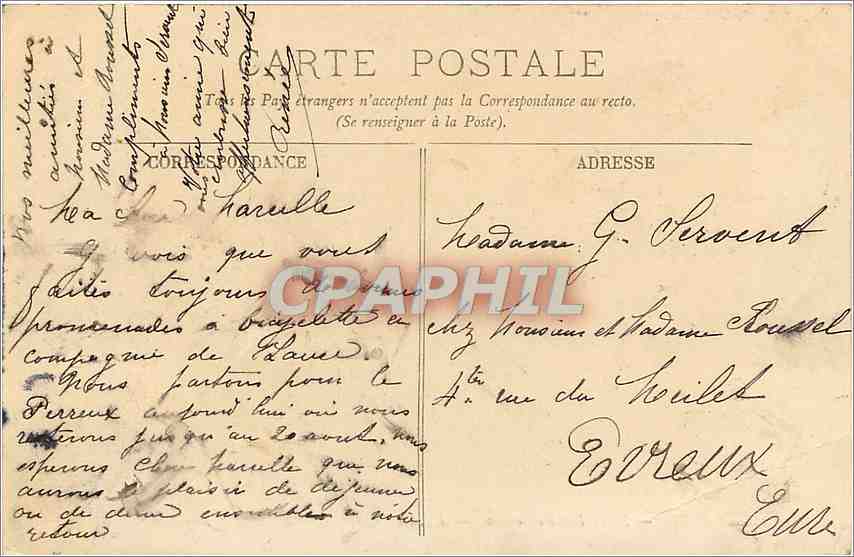 CARTE POSTALE
Tous les Pays étrangers n'acceptent pas la Correspondance au recto.
(Se renseigner à la Poste).
CORRESPONDANCE
ADRESSE
Ma chère Marcelle
Je vois que vous
faites toujours de bonnes
promenades à bicyclette en
compagnie de
Nous partons pour le
Perreux aujourd'hui où nous
resterons jusqu'au 20 aout, nous
esperons chère Marcelle que nous
aurons le plaisir de déjeuner
ou de diner ensembles à notre
retour
Nos meilleures
amitiés à
Monsieur et
Madame Roussel
Compliments
à Monsieur Servent
Votre amie qui
vous embrasse bien
affectueusement
Renée
Madame G. Servent
chez Monsieur et Madame Roussel
4ter rue du Meilet
Evreux
Eure
CPAPHIL